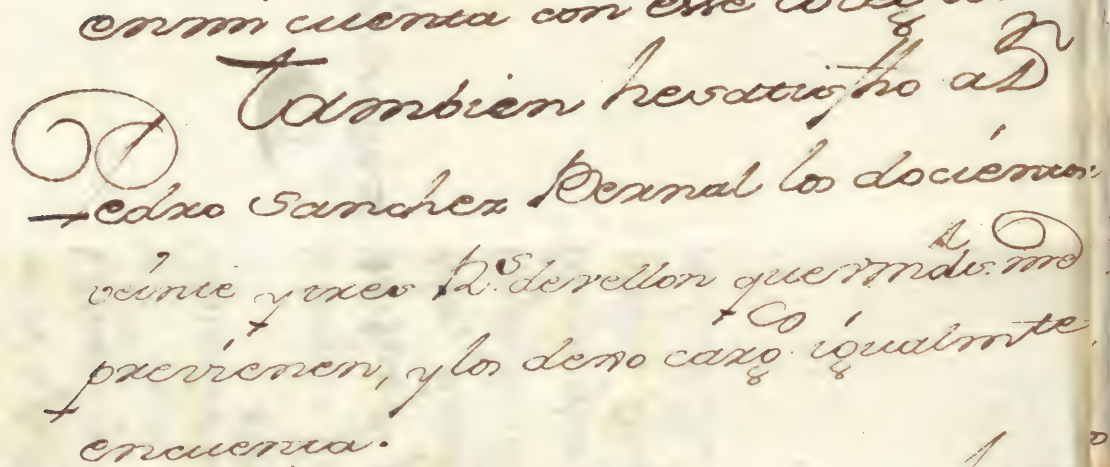 enmi cuenta con esse
Tambien hesatisfho aD.ⁿ
Pedro Sanchez Bernal los docientos
veinte y tres R.ˢ devellon que me
previenen, y los
encuenta.